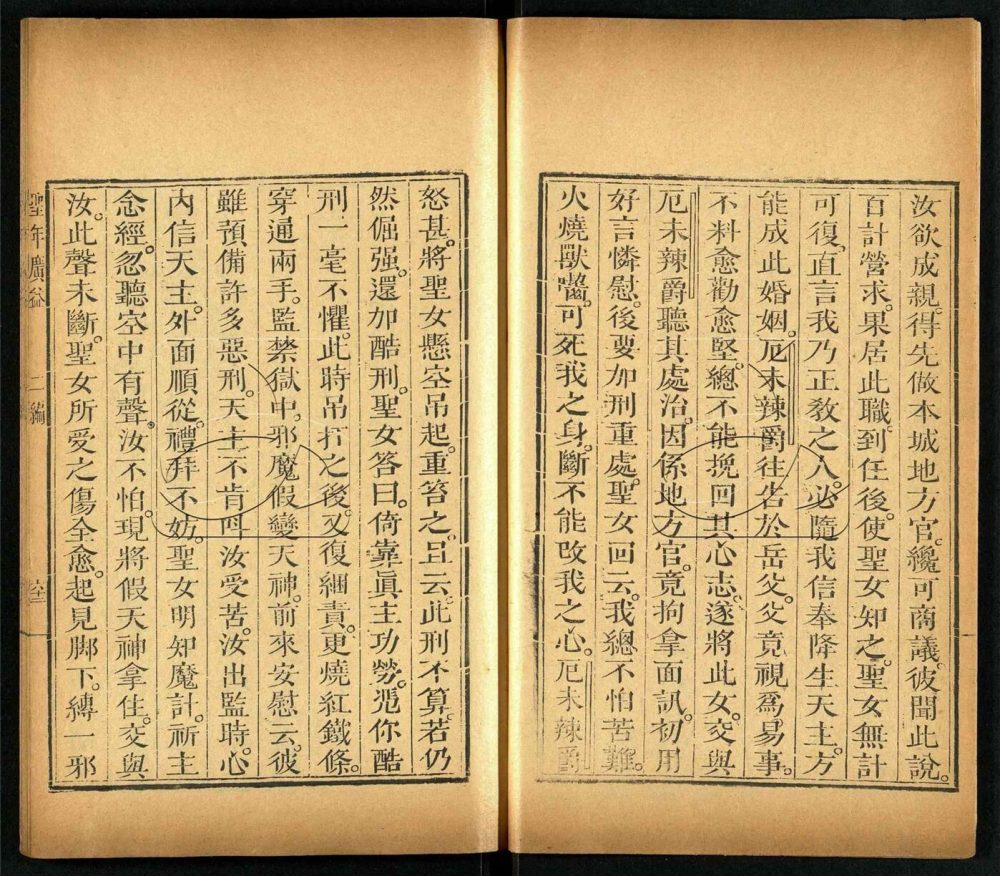 汝欲成親。得先做本城地方官。纔可商議。彼聞此說。
百計營求。果居此職。到任後。使聖女知之。聖女無計
可復。直言我乃正教之人。必隨我信奉降生天主。方
能成此婚姻。厄未辣爵往告於岳父。父竟視爲易事。
不料愈勸愈堅。總不能挽回其心志。遂將此女。交與
厄未辣爵聽其處治。因係地方官。竟拘拿面訊。初用
好言憐慰。後要加刑重處。聖女回云。我總不怕苦難。
火燒獸嚙。可死我之身。斷不能改我之心。厄未辣爵
怒甚。將聖女懸空吊起。重笞之。且云。此刑不算。若仍
然倔强。還加酷刑。聖女答曰。倚靠眞主功勞。慿你酷
刑。一毫不懼。此時吊打之後。又復綑責。更燒紅鐵條。
穿通兩手。監禁獄中。邪魔假變天神。前來安慰云。彼
雖預備許多惡刑。天主不肯叫汝受苦。汝出監時。心
內信天主。外面順從。禮拜不妨。聖女明知魔計。祈主
念經。忽聽空中有聲。汝不怕。現將假天神拿住。交與
汝。此聲未斷。聖女所受之傷全愈。起見脚下。縛一邪
聖年廣益 二編 六十二